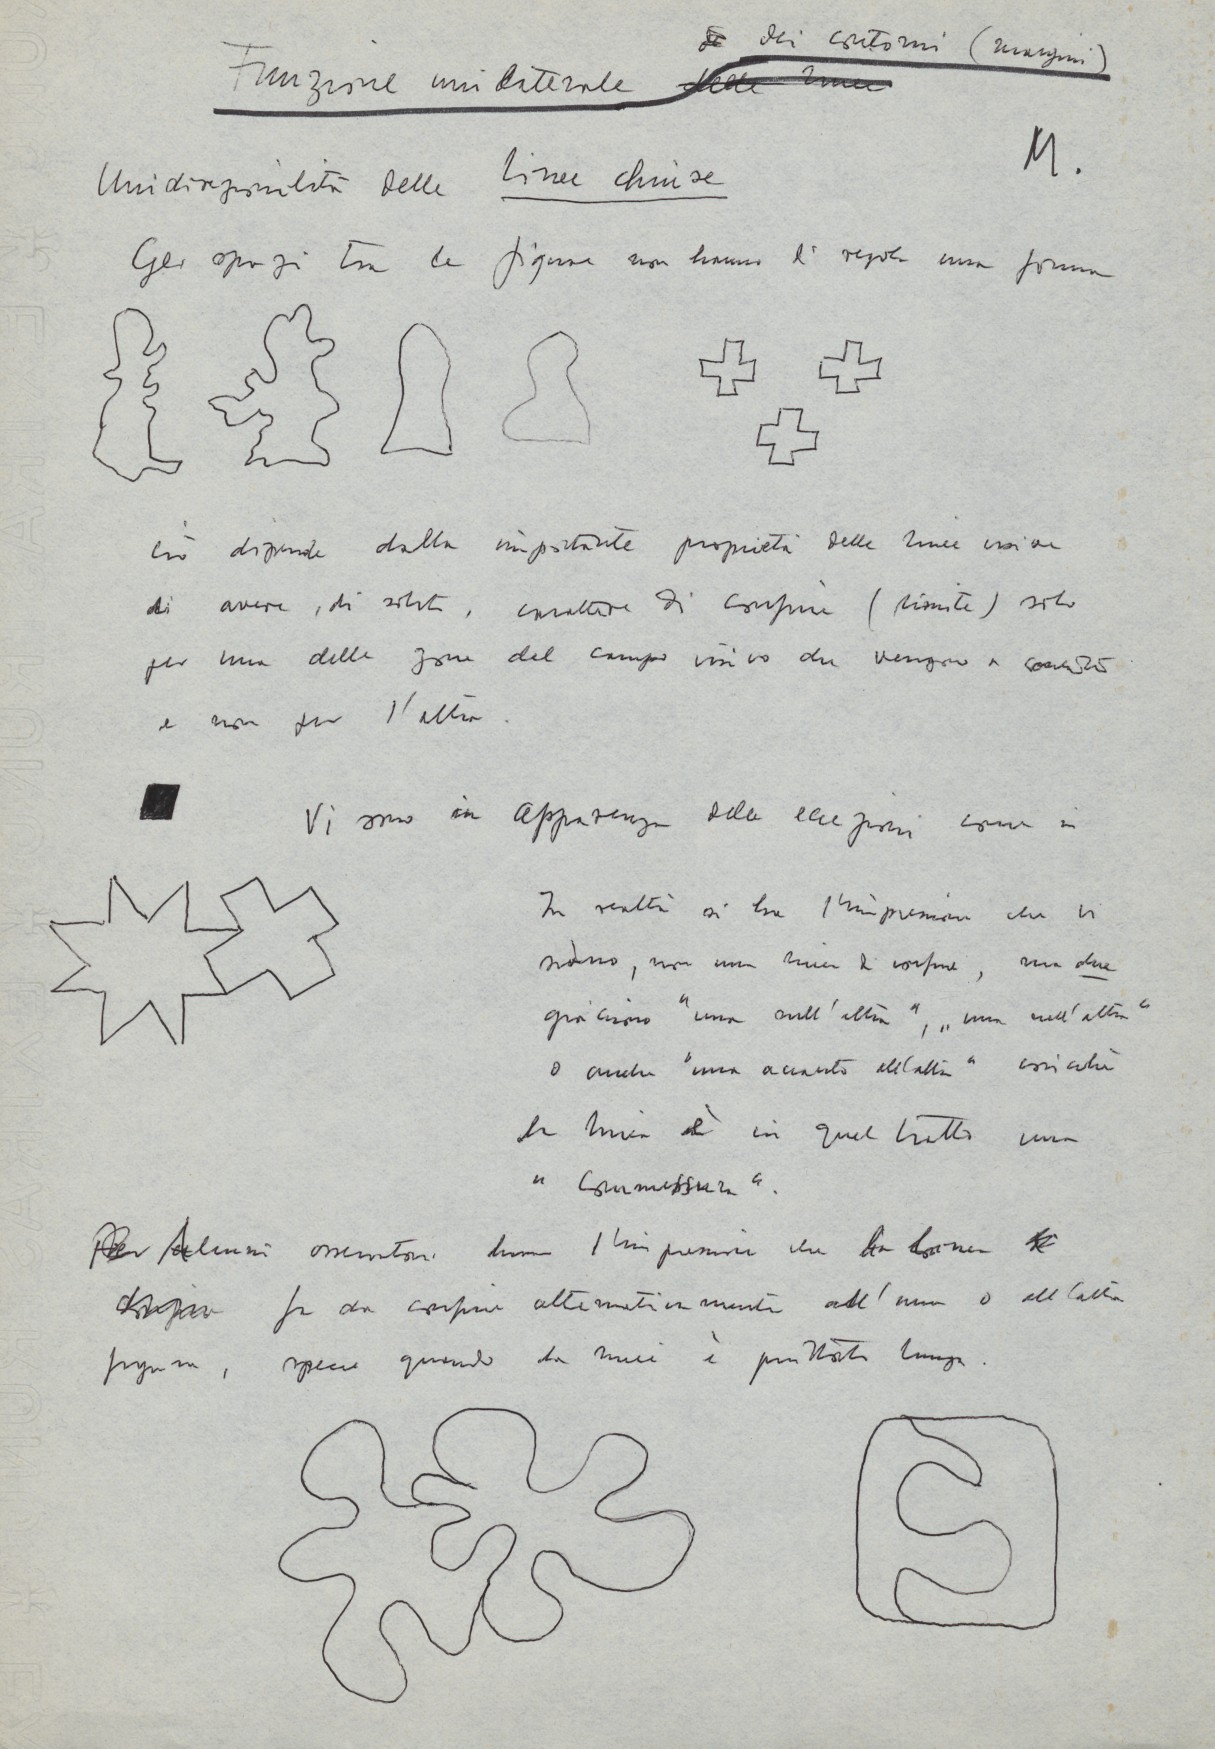 Funzione unilaterale dei contorni (margini)
M.
Unidirezionalità delle linee chiuse
Gli spazi tra le figure non hanno di regola una forma
Ciò dipende dalla importante proprietà delle linee visive
di avere, di solito, carattere di confine (limite) solo
per una delle zone del campo visivo che vengono a contatto
e non per l'altra.
Vi sono in apparenza delle eccezioni come in
In realtà si ha l'impressione che vi
siano, non una linea di confine, ma due
giacciono "una sull'altra", "una nell'altra"
o anche "una accanto all'altra" cosicché
la linea è in quel tratto una
"commessura".
Alcuni osservatori hanno l'impressione che la linea
fa da confine alternativamente all'una o all'altra
figura, specie quando la linea è piuttosto lunga.